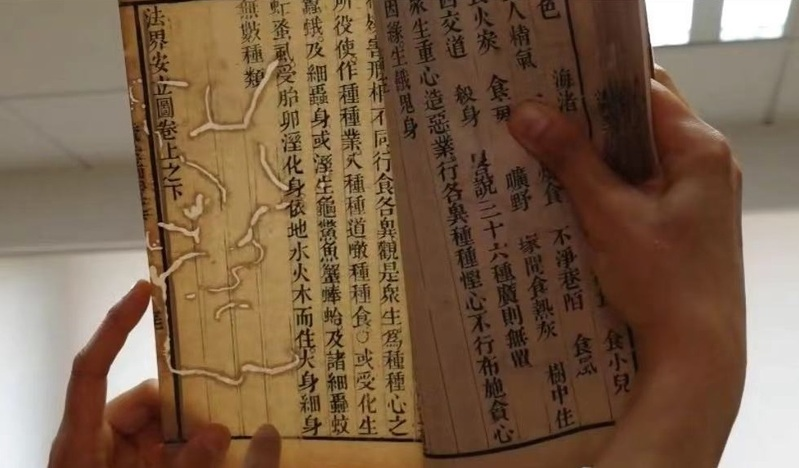 人精氣
海渚
不淨巷陌
食小兒
食火炭
曠野
塚間食熱灰
樹中住
交道
殺身
皆說三十六種廣則無量
眾生重心造惡業行各異種種慳心不行布施貪心
因緣生餓鬼身
害形相不同行食各異觀是眾生為種種心之
所役使作種種業入種種道噉種種食○或受化生
蠶蛾及細蟲身或溼生龜鱉魚蟹蜯蛤及諸細蟲蚊
虻蚤虱受胎卵溼化身依地水火木而住大身細身
無數種類
法界安立圖卷上之下